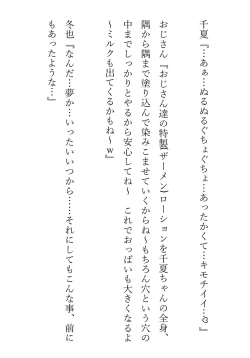 千夏『…あぁ…ぬるぬるぐちょぐちょ…あったかくて…キモチイイ…♡』
おじさん『おじさん達の特製(ザーメン)ローションを千夏ちゃんの全身、
隅から隅まで塗り込んで染みこませていくからね～もちろん穴という穴の
中までしっかりとやるから安心してね～　これでおっぱいも大きくなるよ
～ミルクも出てくるかもね～w』
冬也『なんだ…夢か…いったいいつから……それにしてもこんな事、前に
もあったような…』